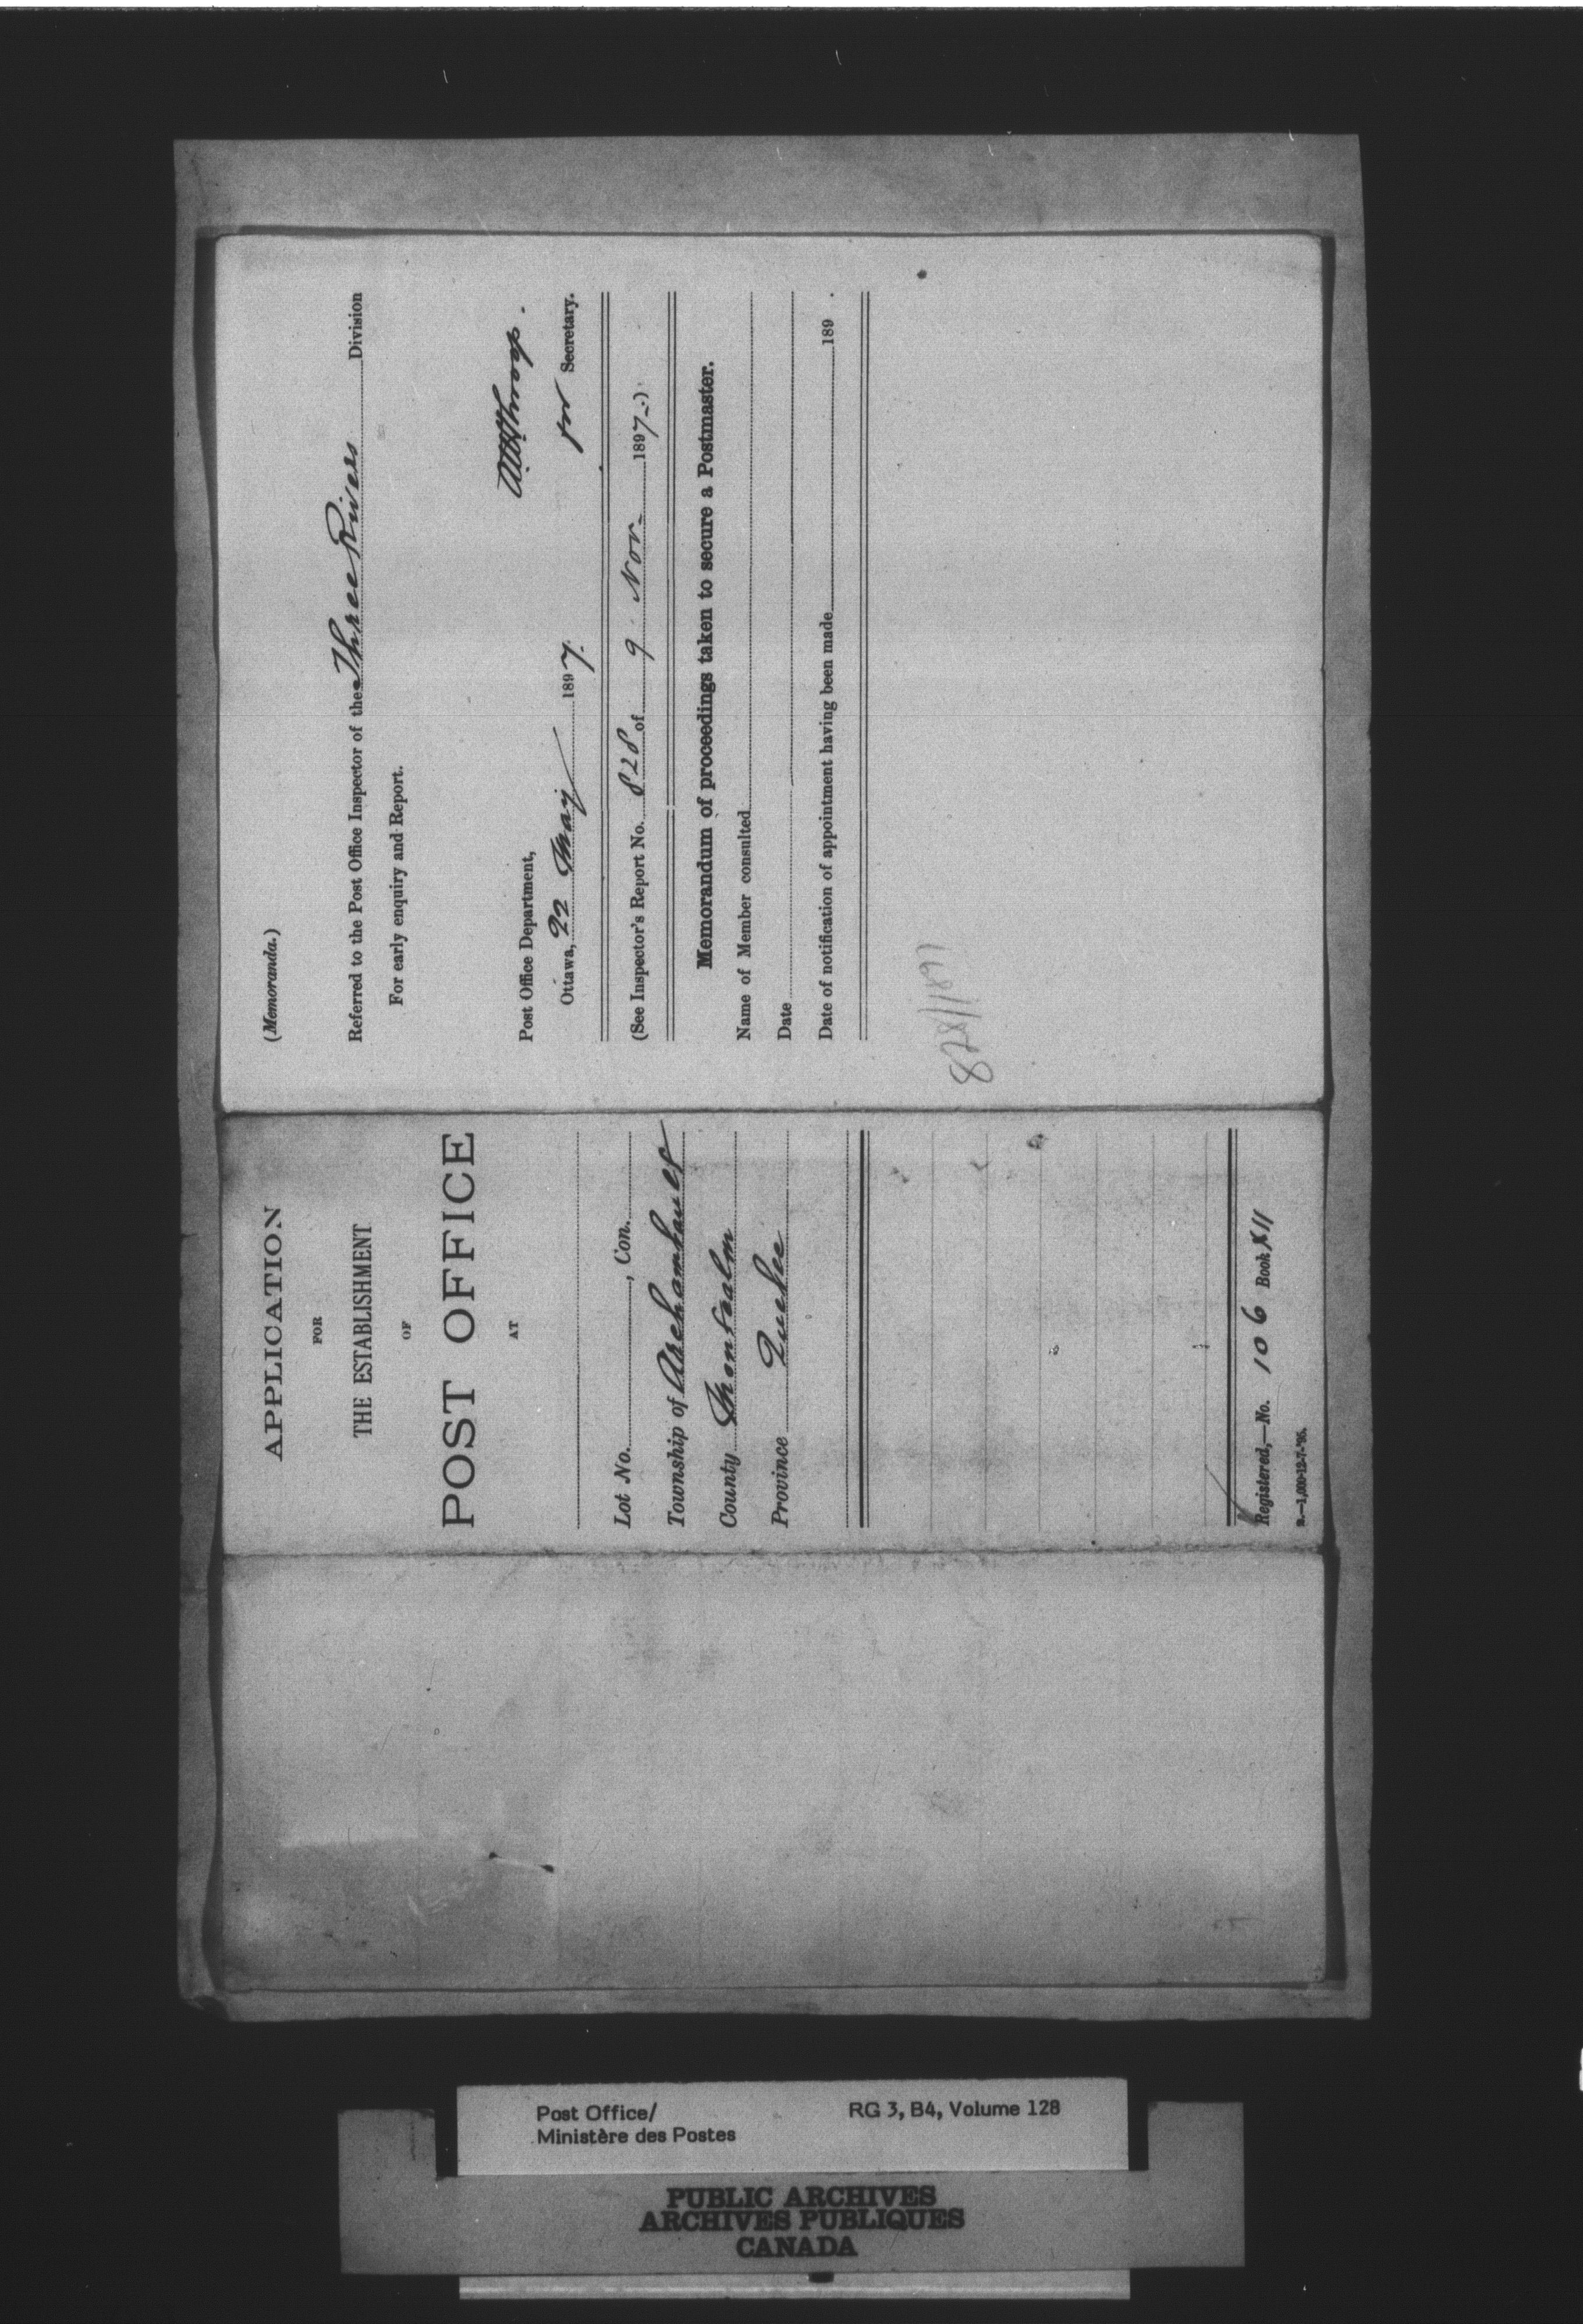 (Memoranda.)
Referred to the Post Office Inspector of the Three Rivers Division
For early enquiry and Report.
for Secretary.
Post Office Department,
Ottawa, 22 May 1897.
(See Inspector's Report No. 828 of 9 Nov- 1897-)
Memorandum of proceedings taken to secure a Postmaster.
Name of Member consulted
Date
Date of notification of appointment having been made 189 .
828/1897
APPLICATION
FOR
THE ESTABLISHMENT
OF
POST OFFICE
AT
Lot No. , Con.
Township of Archambault
County Montcalm
Province Quebec
Registered,—No. 106 Book XII
Post Office/
Ministère des Postes
RG 3, B4, Volume 128
PUBLIC ARCHIVES
ARCHIVES PUBLIQUES
CANADA